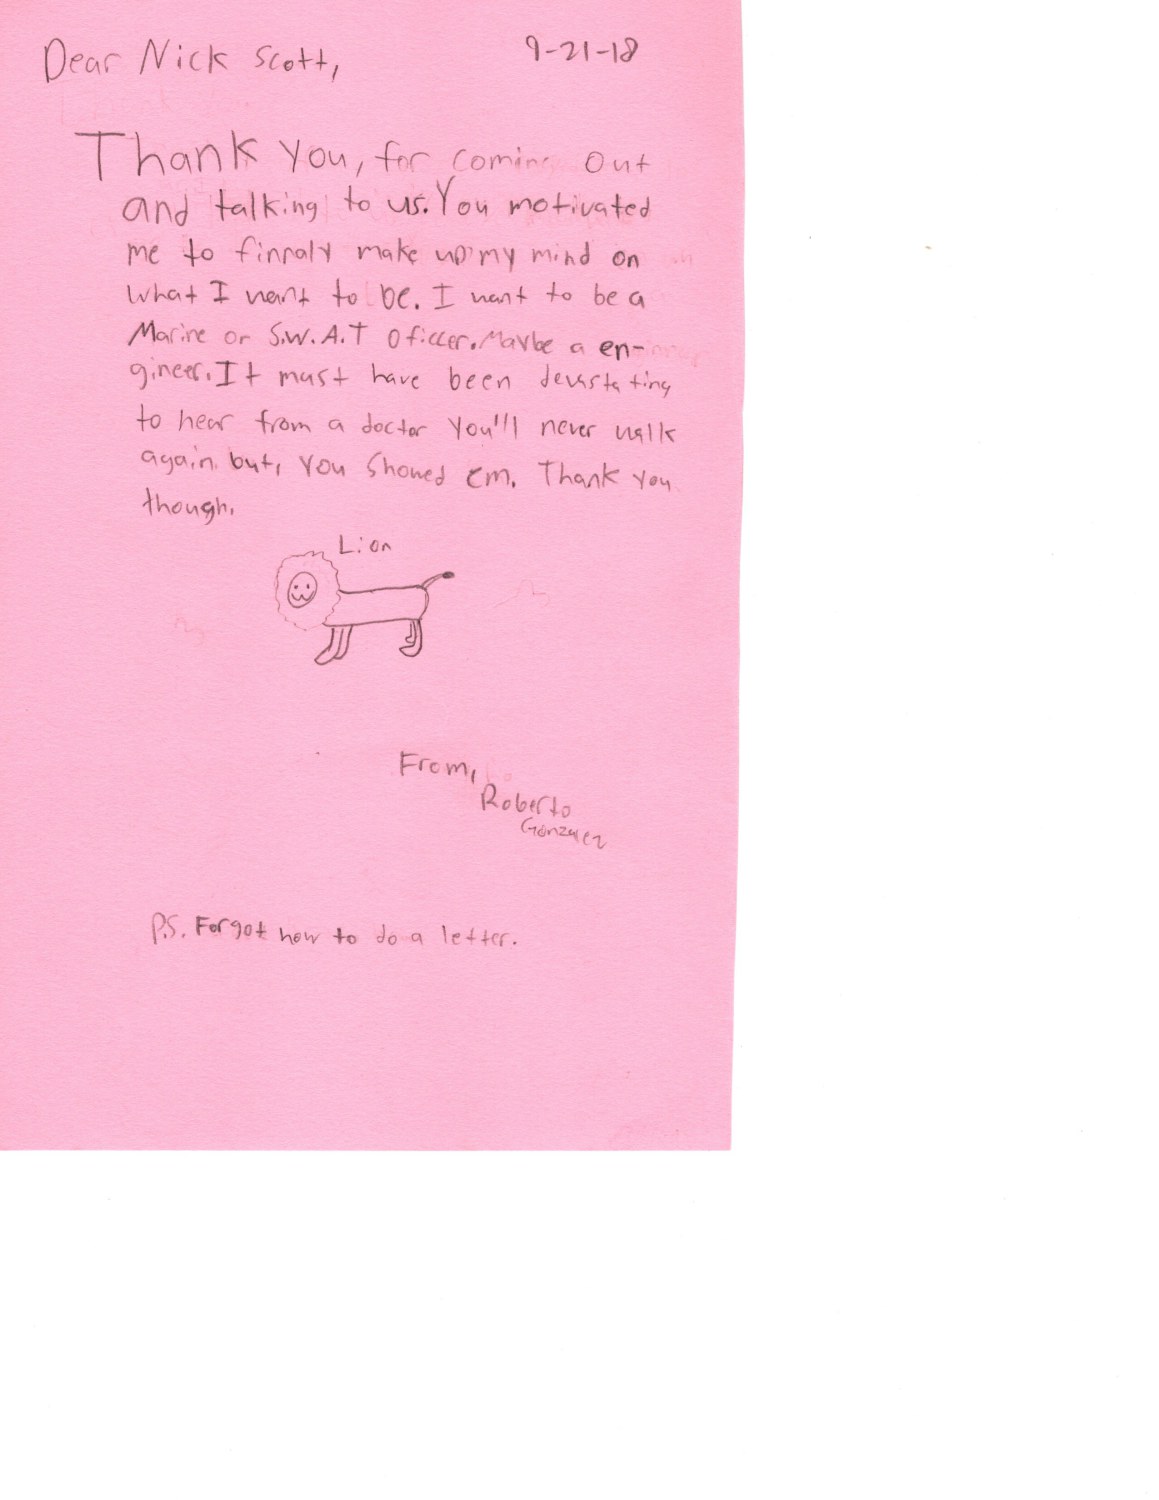 Dear Nick Scott,
9-21-18
Thank you, for coming out
and talking to us. You motivated
me to finnaly make up my mind on
what I want to be. I want to be a
Marine or S.W.A.T oficcer. Maybe a en-
gineer. It must have been devastating
to hear from a doctor you'll never walk
again. but, you showed em. Thank you
though.
Lion
From,
Roberto
Gonzalez
P.S. Forgot how to do a letter.